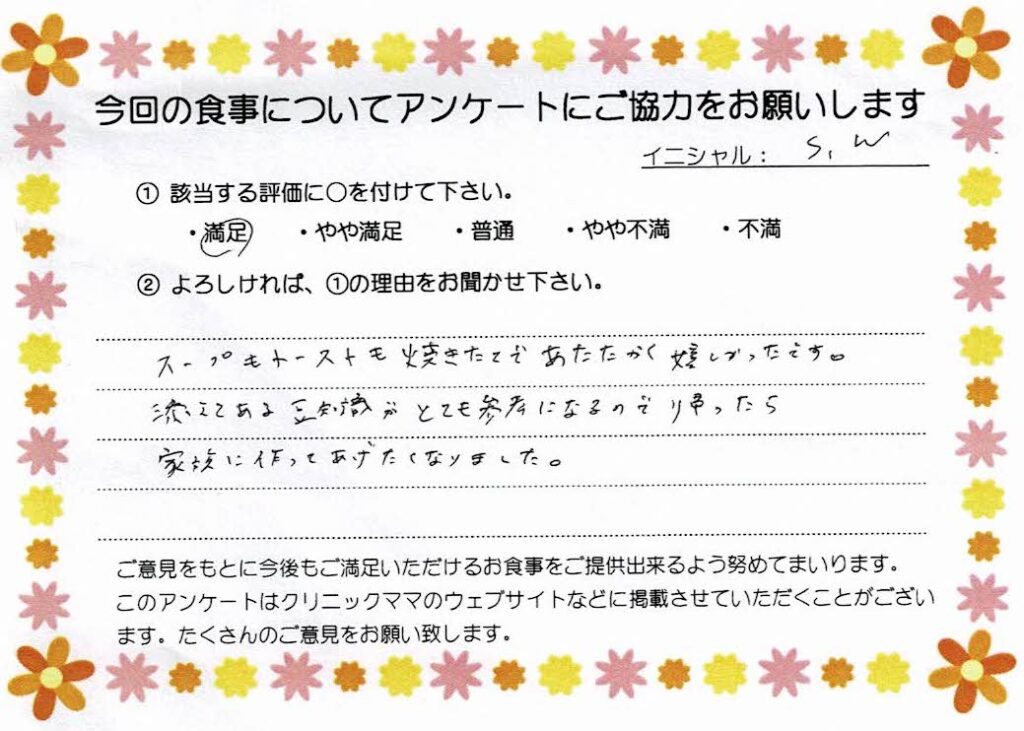 今回の食事についてアンケートにご協力をお願いします
イニシャル： S, W
① 該当する評価に〇を付けて下さい。
・満足 ・やや満足 ・普通 ・やや不満 ・不満
② よろしければ、①の理由をお聞かせ下さい。
スープもトーストも焼きたてであたたかく嬉しかったです。
添えてある豆知識がとても参考になるので帰ったら
家族に作ってあげたくなりました。
ご意見をもとに今後もご満足いただけるお食事をご提供出来るよう努めてまいります。
このアンケートはクリニックママのウェブサイトなどに掲載させていただくことがござい
ます。たくさんのご意見をお願い致します。